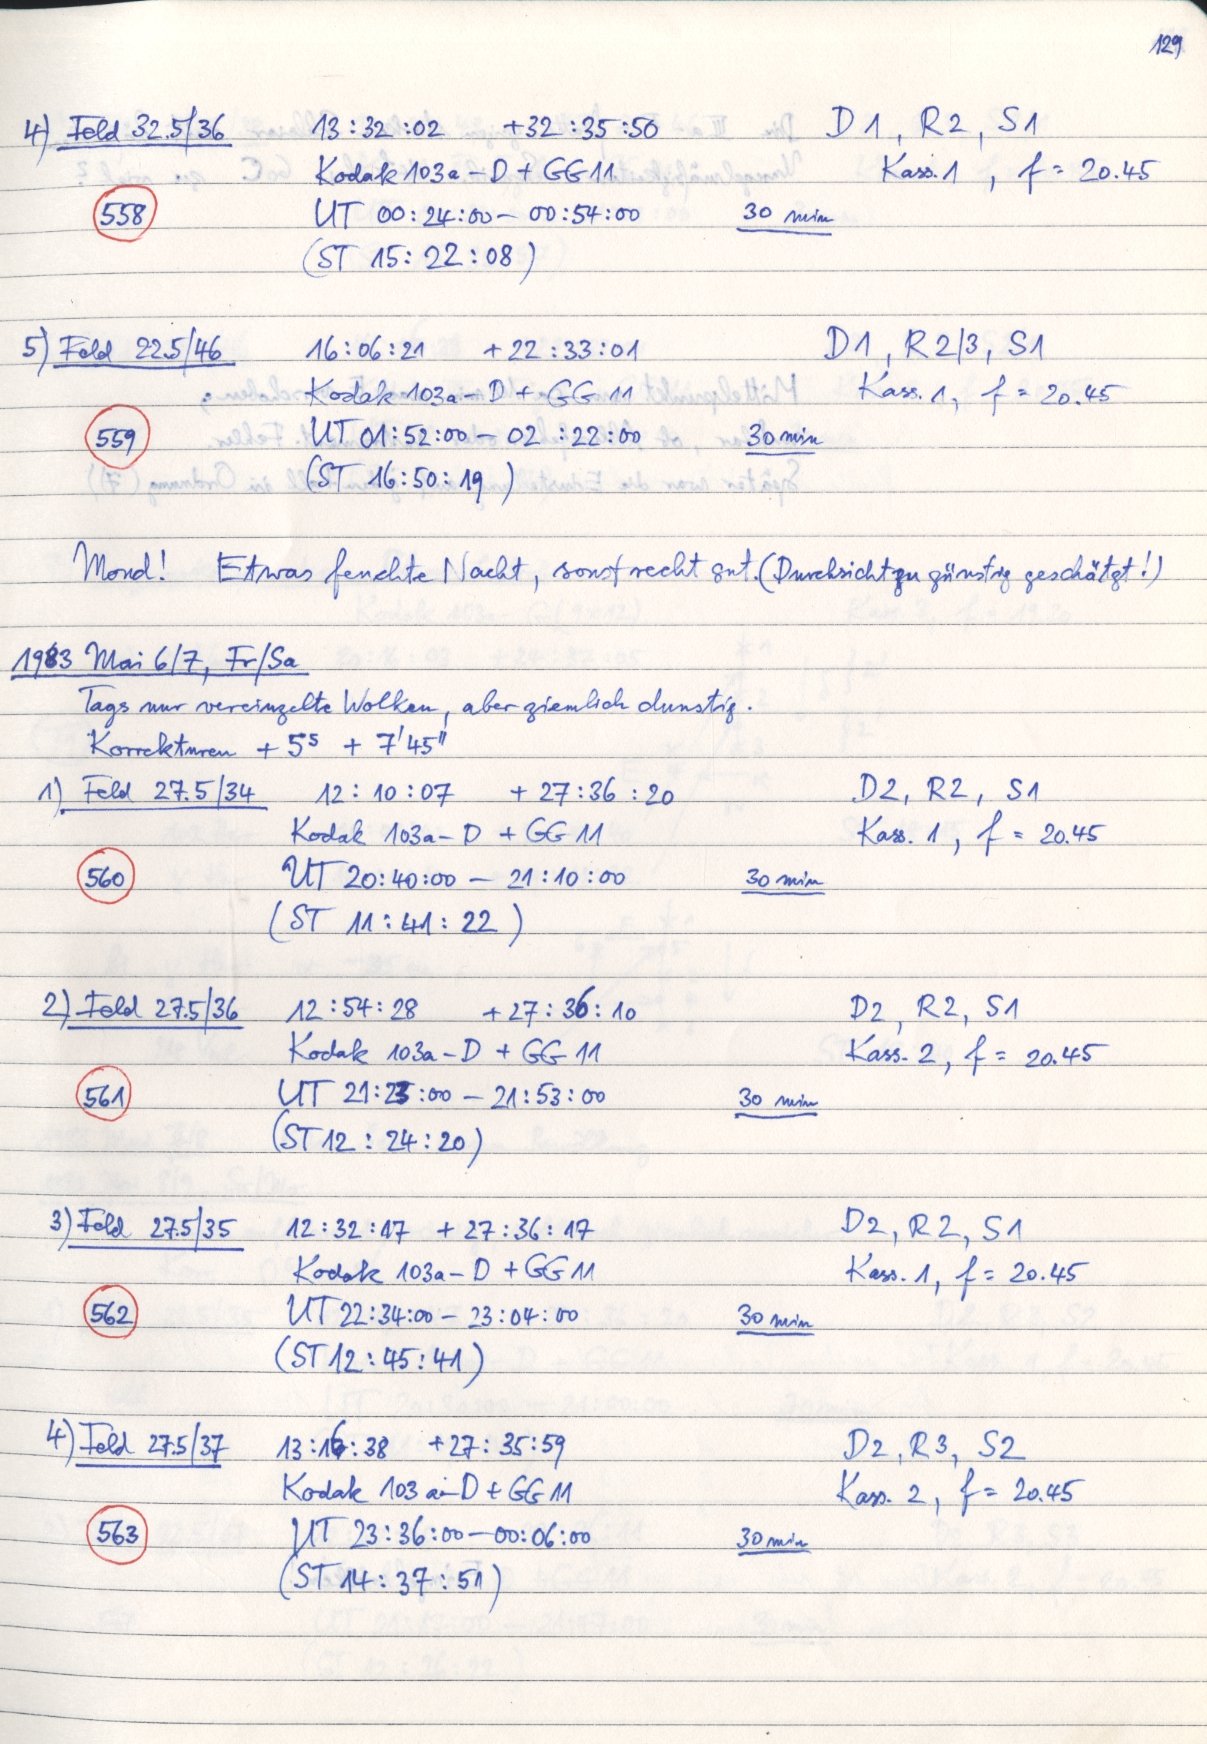 129
4) Feld 32.5/36 13:32:02 +32:35:50 D1, R2, S1
Kodak 103a-D + GG11 Kass. 1, f = 20.45
558 UT 00:24:00 - 00:54:00 30 min
(ST 15:22:08)
5) Feld 22.5/46 16:06:21 +22:33:01 D1, R2/3, S1
Kodak 103a-D + GG11 Kass. 1, f = 20.45
559 UT 01:52:00 - 02:22:00 30 min
(ST 16:50:19)
Mond! Etwas feuchte Nacht, sonst recht gut. (Durchsicht zu günstig geschätzt!)
1983 Mai 6/7, Fr/Sa
Tags nur vereinzelte Wolken, aber ziemlich dunstig.
Korrekturen + 5ˢ + 7'45"
1) Feld 27.5/34 12:10:07 +27:36:20 D2, R2, S1
Kodak 103a-D + GG11 Kass. 1, f = 20.45
560 UT 20:40:00 - 21:10:00 30 min
(ST 11:41:22)
2) Feld 27.5/36 12:54:28 +27:36:10 D2, R2, S1
Kodak 103a-D + GG11 Kass. 2, f = 20.45
561 UT 21:23:00 - 21:53:00 30 min
(ST 12:24:20)
3) Feld 27.5/35 12:32:17 +27:36:17 D2, R2, S1
Kodak 103a-D + GG11 Kass. 1, f = 20.45
562 UT 22:34:00 - 23:04:00 30 min
(ST 12:45:41)
4) Feld 27.5/37 13:16:38 +27:35:59 D2, R3, S2
Kodak 103a-D + GG11 Kass. 2, f = 20.45
563 UT 23:36:00 - 00:06:00 30 min
(ST 14:37:51)